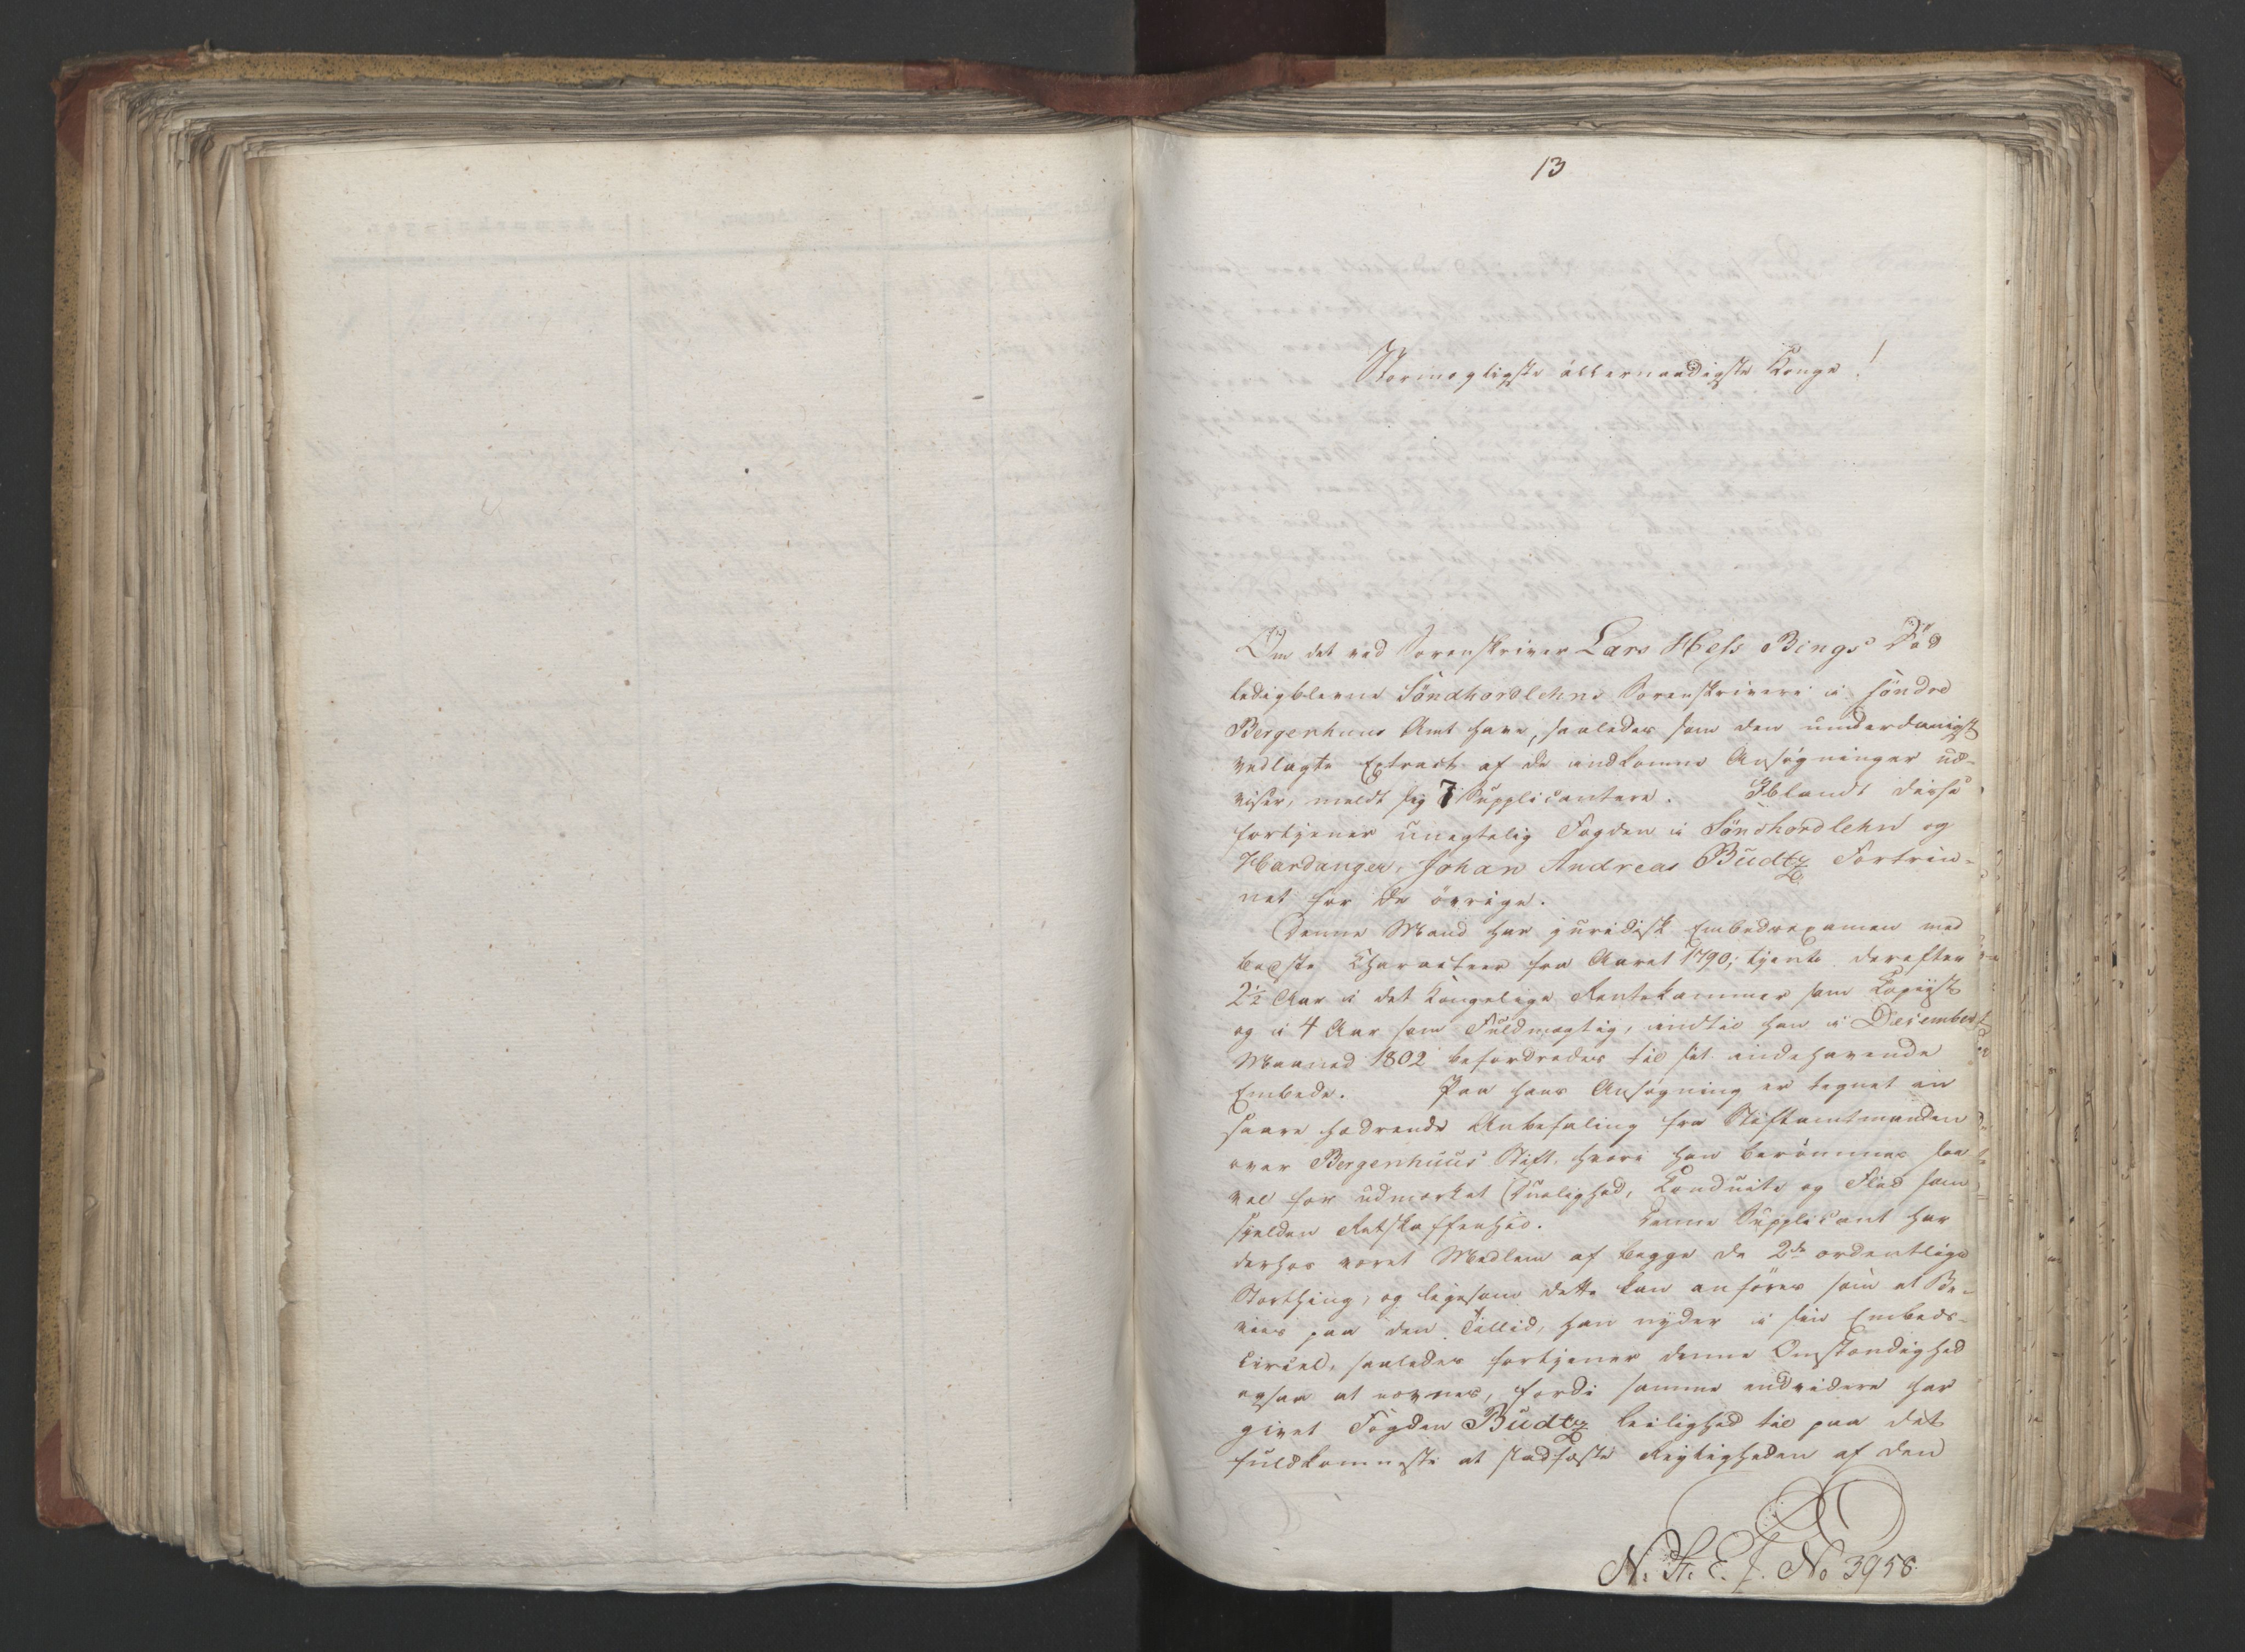 13
Stormægtigste allernaadigste Konge!
Om det ved Sorenskriver Lars Hess Bings Död
ledigblevne Söndhordlehns Sorenskriveri i söndre
Bergenhuus Amt have, saaledes som den underdanigst
vedlagte Extract af de indkomne Ansögninger ud-
viser, meldt sig 7 Supplicantere. Iblandt disse
fortjener unegtelig Fogden i Söndhordlehn og
Hardanger, Johan Andreas Budtz Fortrin-
net for de övrige.
Denne Mand har juridisk Embedsexamen med
bedste Characteer fra Aaret 1790; tjente derefter
2½ Aar i det kongelige Rentekammer som Copiist
og i 4 Aar som Fuldmægtig, indtil han i December
Maaned 1802 befordredes til sit indehavende
Embede. Paa hans Ansögning er tegnet en
saare hædrende Anbefaling fra Stiftamtmanden
over Bergenhuus Stift, hvori han berömmes saa-
vel for udmærket Duelighed, Conduite og Flid som
sjelden Retskaffenhed. Denne Supplicant har
derhos været Medlem af begge de 2de ordentlige
Storthing, og ligesom dette kan anföres som et Be-
viis paa den Tillid, han nyder i sin Embeds-
Cirkel, saaledes fortjener denne Omstændighed
ogsaa at nævnes, fordi samme endvidere har
givet Fogden Budtz Leilighed til paa det
fuldkomneste at stadfæste Rigtigheden af den
N. St. E. J. No 3958.